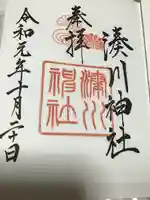 奉拝
湊川神社
湊川神社
令和元年十月二十日